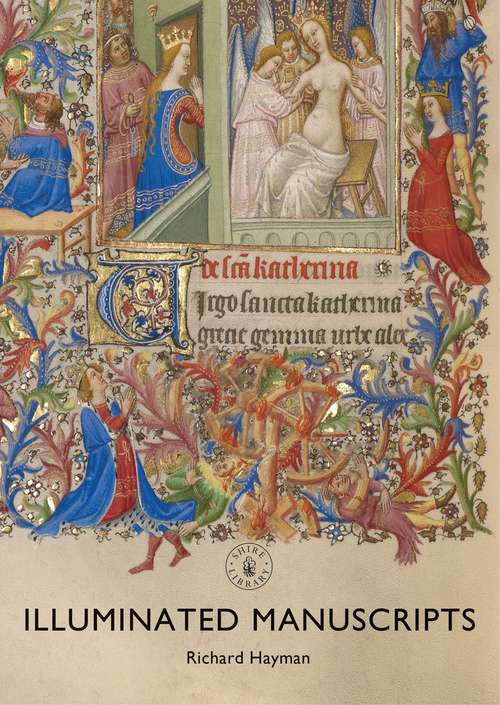 de scā katherina
Irgo sancta katherina
grecie gemma urbe alex
SHIRE LIBRARY
ILLUMINATED MANUSCRIPTS
Richard Hayman